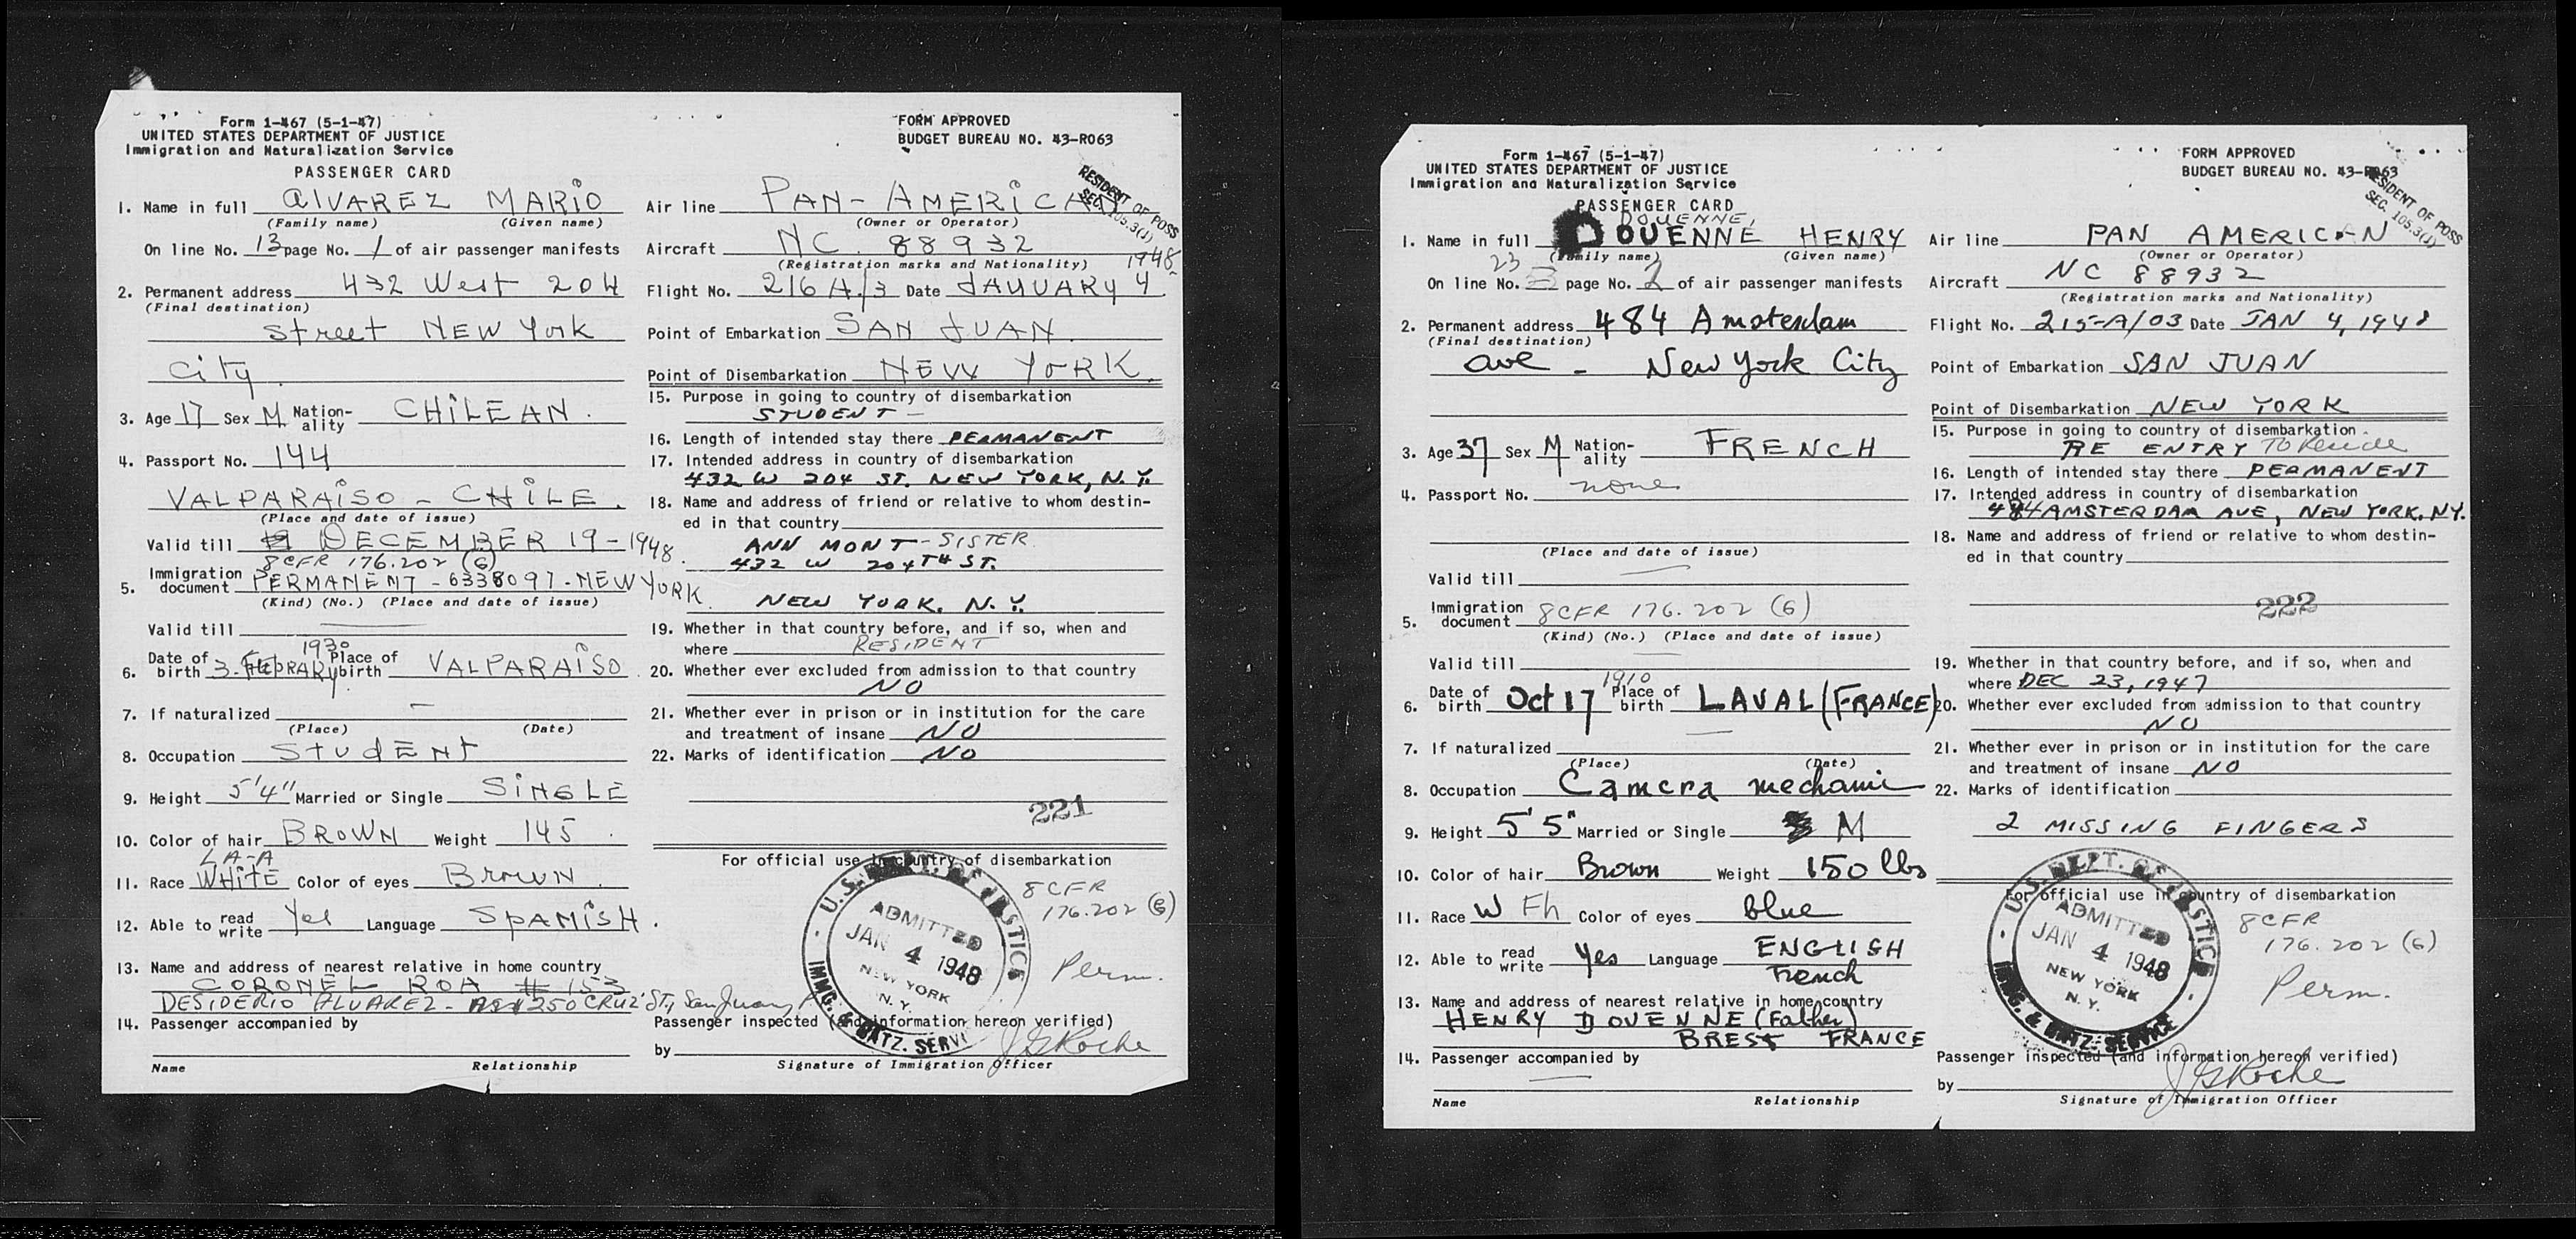 Form 1-467 (5-1-47)
UNITED STATES DEPARTMENT OF JUSTICE
Immigration and Naturalization Service
PASSENGER CARD
FORM APPROVED
BUDGET BUREAU NO. 43-R063
RESIDENT OF POSS
SEC. 105.3(J)
1. Name in full ALVAREZ MARIO
(Family name) (Given name)
On line No. 13 page No. 1 of air passenger manifests
2. Permanent address 432 West 204
(Final destination)
Street NEW York
City
3. Age 17 Sex M Nationality CHILEAN.
4. Passport No. 144
VALPARAISO - CHILE.
(Place and date of issue)
Valid till DECEMBER 19-1948.
8 CFR 176.202 (G)
5. Immigration document PERMANENT - 6338097 - NEW YORK.
(Kind) (No.) (Place and date of issue)
Valid till
1930
6. Date of birth 3- FEBRARY Place of birth VALPARAISO.
7. If naturalized -
(Place) (Date)
8. Occupation STUdENT
9. Height 5'4" Married or Single SINGLE
10. Color of hair BROWN Weight 145.
LA-A
11. Race WHITE Color of eyes BROWN.
12. Able to read write Yes Language SPANISH.
13. Name and address of nearest relative in home country
CORONEL ROA # 153
DESIDERIO ALVAREZ - 250 CRUZ ST, San Juan, P
14. Passenger accompanied by
Name Relationship
Air line PAN-AMERICAN
(Owner or Operator)
Aircraft NC 88932
(Registration marks and Nationality)
1948
Flight No. 216A/3 Date JANUARY 4
Point of Embarkation SAN JUAN.
Point of Disembarkation NEW YORK.
15. Purpose in going to country of disembarkation
STUDENT -
16. Length of intended stay there PERMANENT
17. Intended address in country of disembarkation
432 W 204 ST. NEW YORK, N.Y.
18. Name and address of friend or relative to whom destin-
ed in that country
ANN MONT - SISTER
432 W 204TH ST.
NEW YORK, N.Y.
19. Whether in that country before, and if so, when and
where RESIDENT
20. Whether ever excluded from admission to that country
NO
21. Whether ever in prison or in institution for the care
and treatment of insane NO
22. Marks of identification NO
221
For official use in country of disembarkation
8 CFR
176.202 (G)
Perm.
U.S. DEPT. OF JUSTICE
ADMITTED
JAN 4 1948
NEW YORK
N.Y.
IMMG. & NATZ. SERVI
Passenger inspected (and information hereon verified)
by J G Roche
Signature of Immigration Officer
Form 1-467 (5-1-47)
UNITED STATES DEPARTMENT OF JUSTICE
Immigration and Naturalization Service
PASSENGER CARD
FORM APPROVED
BUDGET BUREAU NO. 43-R063
RESIDENT OF POSS
SEC. 105.3(J)
DOUENNE,
1. Name in full DOUENNE HENRY
(Family name) (Given name)
23
On line No. page No. 2 of air passenger manifests
2. Permanent address 484 Amsterdam
(Final destination)
ave - New York City
3. Age 37 Sex M Nationality FRENCH
4. Passport No. none
(Place and date of issue)
Valid till
5. Immigration document 8 CFR 176.202 (G)
(Kind) (No.) (Place and date of issue)
Valid till
1910
6. Date of birth Oct 17 Place of birth LAVAL (FRANCE)
7. If naturalized
(Place) (Date)
8. Occupation Camera mechanic
9. Height 5'5" Married or Single M
10. Color of hair Brown Weight 150 lbs
11. Race W Fh Color of eyes blue
12. Able to read write Yes Language ENGLISH
French
13. Name and address of nearest relative in home country
HENRY DOUENNE (Father)
BREST FRANCE
14. Passenger accompanied by
Name Relationship
Air line PAN AMERICAN
(Owner or Operator)
Aircraft NC 88932
(Registration marks and Nationality)
Flight No. 215-A/03 Date JAN 4, 1948
Point of Embarkation SAN JUAN
Point of Disembarkation NEW YORK
15. Purpose in going to country of disembarkation.
RE ENTRY To Reside
16. Length of intended stay there PERMANENT
17. Intended address in country of disembarkation
484 AMSTERDAM AVE, NEW YORK. NY.
18. Name and address of friend or relative to whom destin-
ed in that country
222
19. Whether in that country before, and if so, when and
where DEC 23, 1947
20. Whether ever excluded from admission to that country
NO
21. Whether ever in prison or in institution for the care
and treatment of insane NO
22. Marks of identification
2 MISSING FINGERS
For official use in country of disembarkation
8 CFR
176.202 (G)
Perm.
U.S. DEPT. OF JUSTICE
ADMITTED
JAN 4 1948
NEW YORK
N.Y.
IMMG. & NATZ. SERVICE
Passenger inspected (and information hereon verified)
by J G Roche
Signature of Immigration Officer